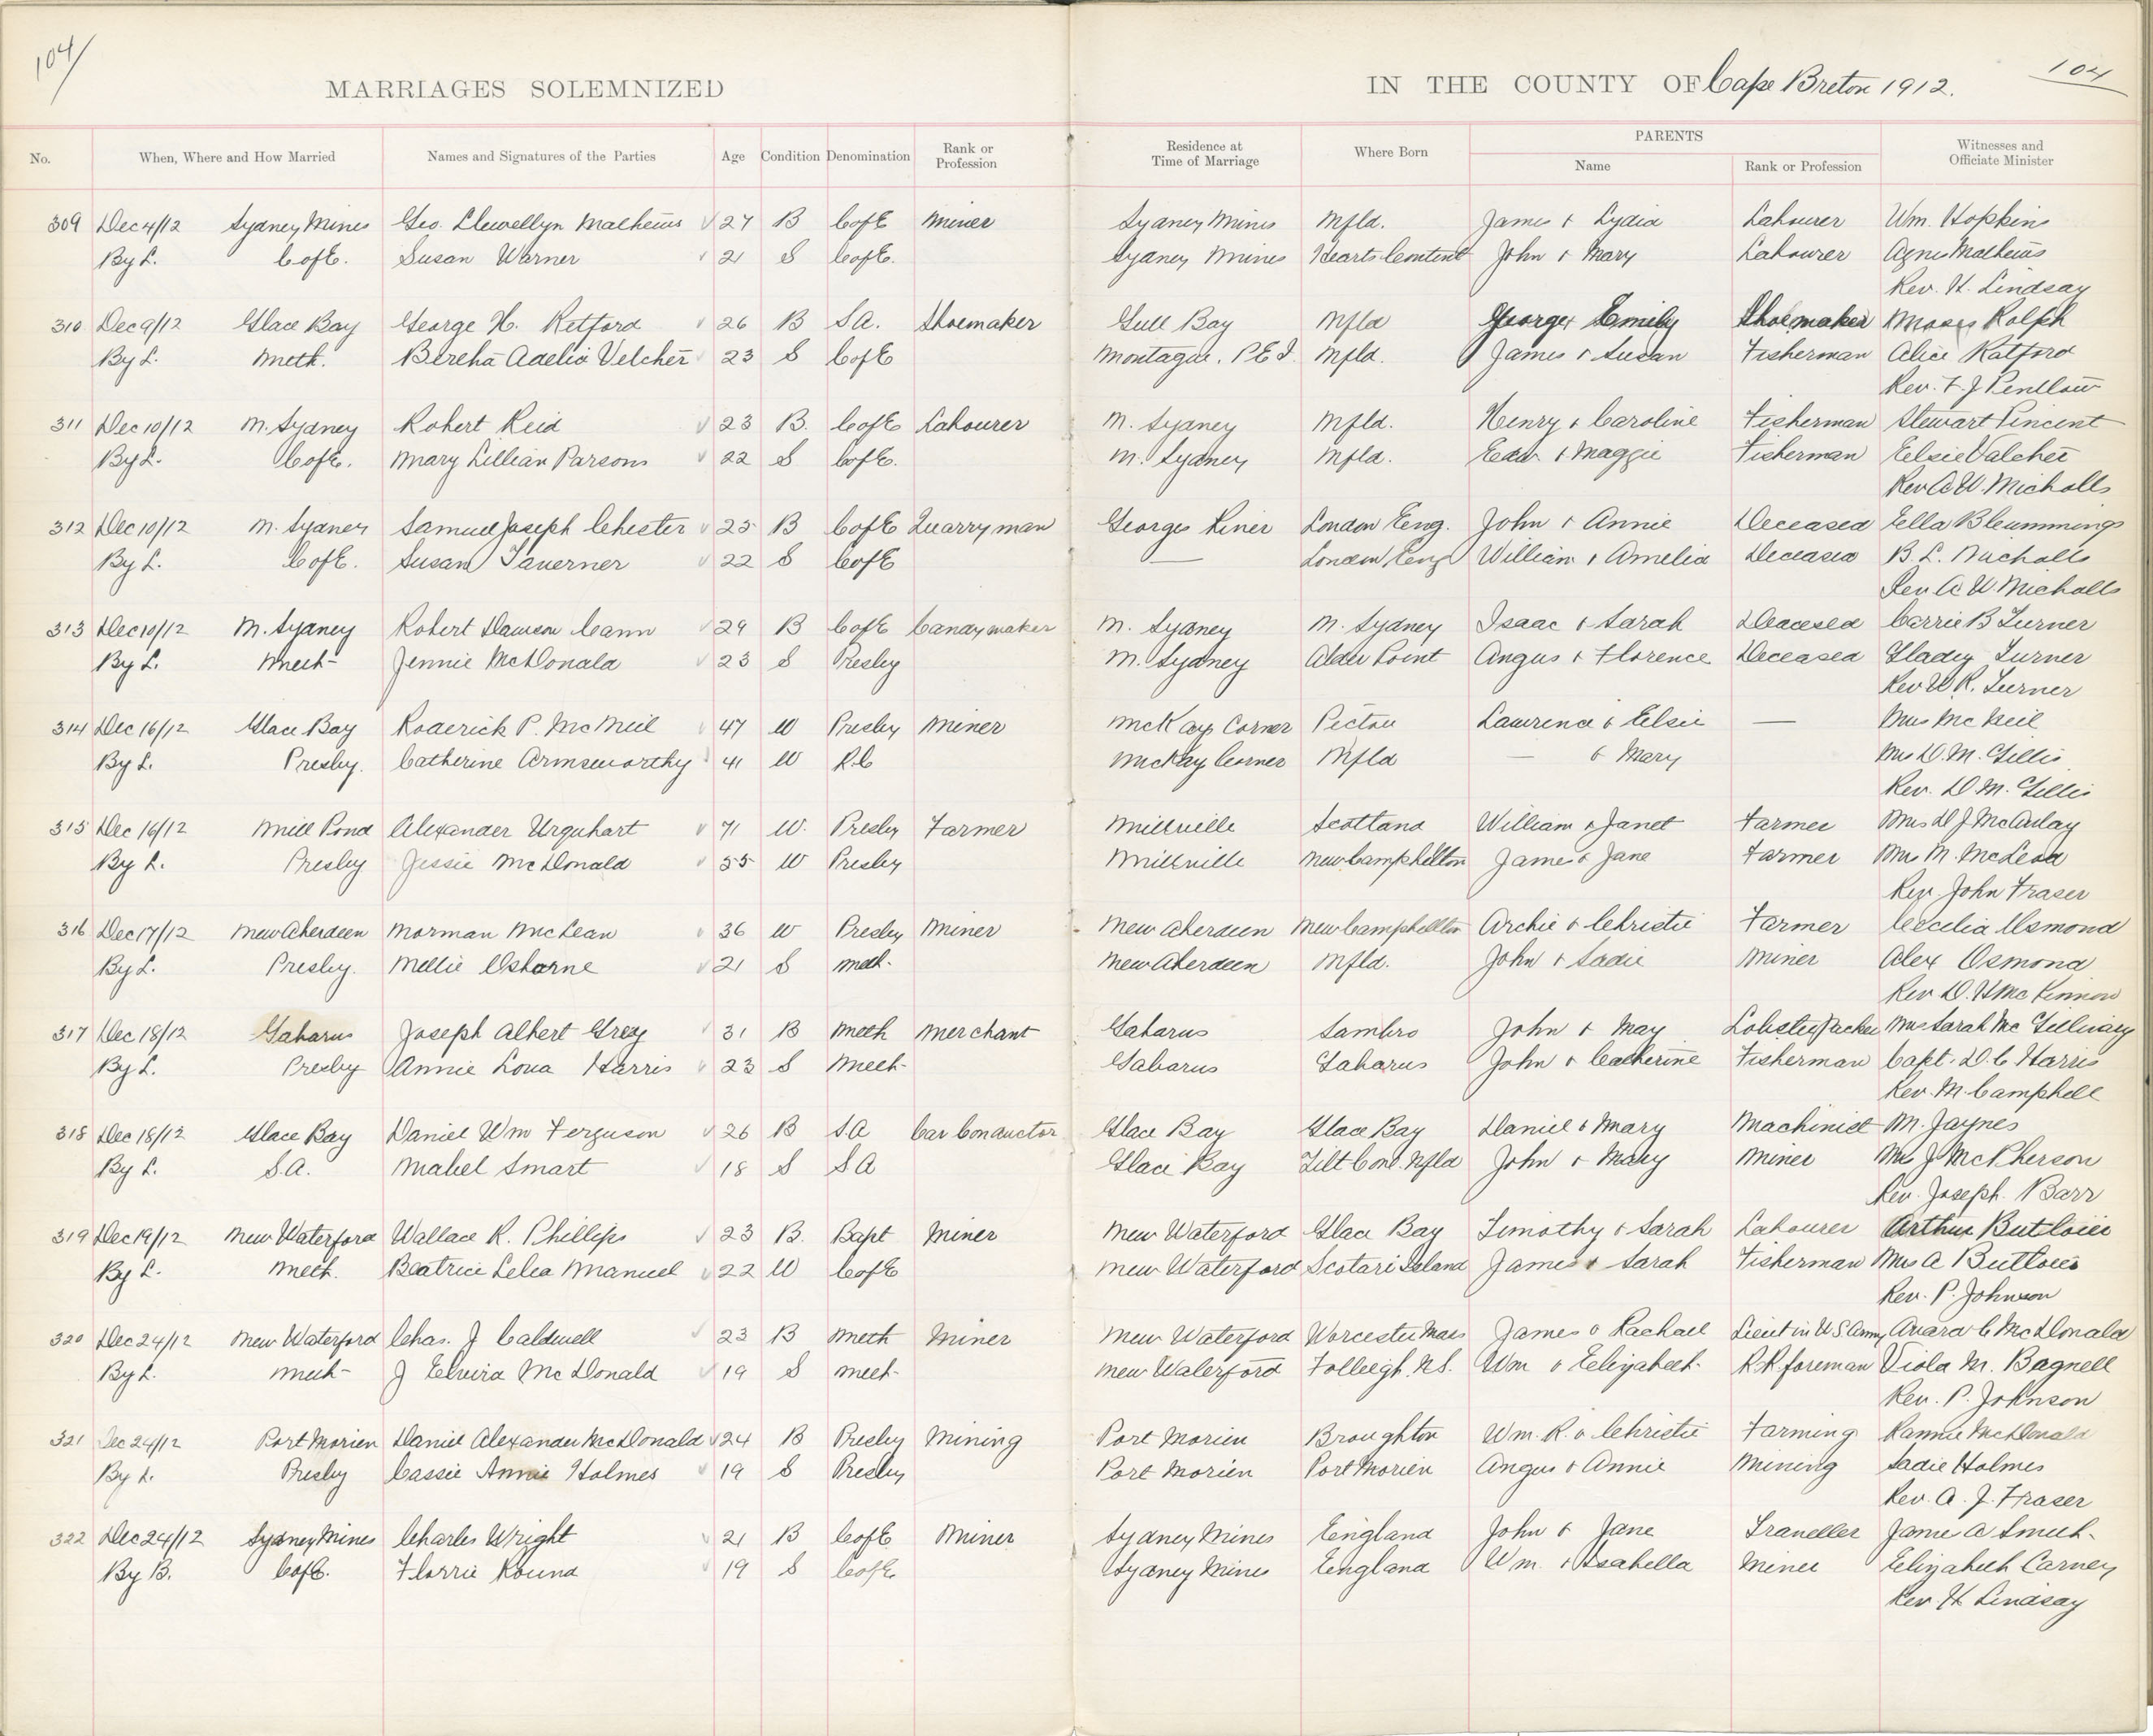 104/
104
MARRIAGES SOLEMNIZED IN THE COUNTY OF Cape Breton 1912.
No. When, Where and How Married Names and Signatures of the Parties Age Condition Denomination Rank or Profession Residence at Time of Marriage Where Born PARENTS Name Rank or Profession Witnesses and Officiate Minister
309 Dec 4/12 Sydney Mines Geo. Llewellyn Mathews 27 B C of E Miner Sydney Mines Nfld. James & Lydia Labourer Wm. Hopkins
By L. C of E. Susan Warner 21 S C of E. Sydney Mines Hearts Content John & Mary Labourer Agnes Mathews
Rev. H. Lindsay
310 Dec 9/12 Glace Bay George H. Retford 26 B S.A. Shoemaker Gull Bay Nfld George & Emily Shoemaker Moses Rolph
By L. Meth. Bertha Adelia Velcher 23 S C of E Montague. P.E.I. Nfld. James & Susan Fisherman Alice Ratford
Rev. F. J.
311 Dec 10/12 N. Sydney Robert Reid 23 B. C of E Labourer N. Sydney Nfld. Henry & Caroline Fisherman Stewart Vincent
By L. C of E. Mary Lillian Parsons 22 S C of E. N. Sydney Nfld. Edw & Maggie Fisherman Elsie Valcher
Rev A W. Nicholls
312 Dec 10/12 N. Sydney Samuel Joseph Chester 25 B C of E Quarryman Georges River London Eng. John & Annie Deceased Ella B Cummings
By L. C of E. Susan Taverner 22 S C of E — London Eng William & Amelia Deceased B. L. Nicholls
Rev A W. Nicholls
313 Dec 10/12 N. Sydney Robert Dawson Cann 29 B C of E Candy maker N. Sydney N. Sydney Isaac & Sarah Deceased Carrie B Turner
By L. Meth- Jennie McDonald 23 S Presby N. Sydney Alder Point Angus & Florence Deceased Gladys Turner
Rev W. R. Turner
314 Dec 16/12 Glace Bay Roderick P. McNeil 47 W Presby Miner McKay Corner Pictou Lawrence & Elsie — Mrs McNeil
By L. Presby. Catherine Armsworthy 41 W R.C McKay Corner Nfld — & Mary Mrs D. M. Gillis
Rev. D. M. Gillis
315 Dec 16/12 Mill Pond Alexander Urquhart 71 W. Presby Farmer Millville Scotland William & Janet Farmer Mrs D J McAulay
By L. Presby Jessie McDonald 55 W Presby Millville New Campbellton James & Jane Farmer Mrs M. McLeod
Rev. John Fraser
316 Dec 17/12 New Aberdeen Norman McLean 36 W Presby Miner New Aberdeen New Campbellton Archie & Christie Farmer Cecelia Osmond
By L. Presby. Nellie Osborne 21 S Meth. New Aberdeen Nfld. John & Sadie Miner Alex Osmond
Rev D. H McKinnon
317 Dec 18/12 Gabarus Joseph Albert Gray 31 B Meth Merchant Gabarus Sambro John & May Lobster Packer Mrs Sarah McGillivary
By L. Presby Annie Loua Harris 23 S Meth- Gabarus Gabarus John & Catherine Fisherman Capt. D. C Harris
Rev. M. Campbell
318 Dec 18/12 Glace Bay Daniel Wm Ferguson 26 B S A Car Conductor Glace Bay Glace Bay Daniel & Mary Machinist M. Jaynes
By L. S.A. Mabel Smart 18 S S A Glace Bay Tilt Cove. Nfld John & Mary Miner Mrs J. McPherson
Rev. Joseph Barr
319 Dec 19/12 New Waterford Wallace R. Phillips 23 B. Bapt Miner New Waterford Glace Bay Timothy & Sarah Labourer Arthur
By L. Meth. Beatrice Lelea Manuel 22 W C of E New Waterford Scotari Island James & Sarah Fisherman Mrs A
Rev. P. Johnson
320 Dec 24/12 New Waterford Chas. J Caldwell 23 B Meth Miner New Waterford Worcester Mass James & Rachael Lieut in U S Army Avard C McDonald
By L. Meth- J Elvira McDonald 19 S Meth- New Waterford Folleigh. N.S. Wm & Elizabeth R.R. foreman Viola M. Bagnell
Rev. P. Johnson
321 Dec 24/12 Port Morien Daniel Alexander McDonald 24 B Presby Mining Port Morien Broughton Wm. R. & Christie Farming Rannie McDonald
By L. Presby Cassie Annie Holmes 19 S Presby Port Morien Port Morien Angus & Annie Mining Sadie Holmes
Rev. A. J. Fraser
322 Dec 24/12 Sydney Mines Charles Wright 21 B C of E Miner Sydney Mines England John & Jane Traveller Jame A Smith
By B. C of E. Florrie Round 19 S C of E. Sydney Mines England Wm. & Isabella Miner Elizabeth Carney
Rev H. Lindsay